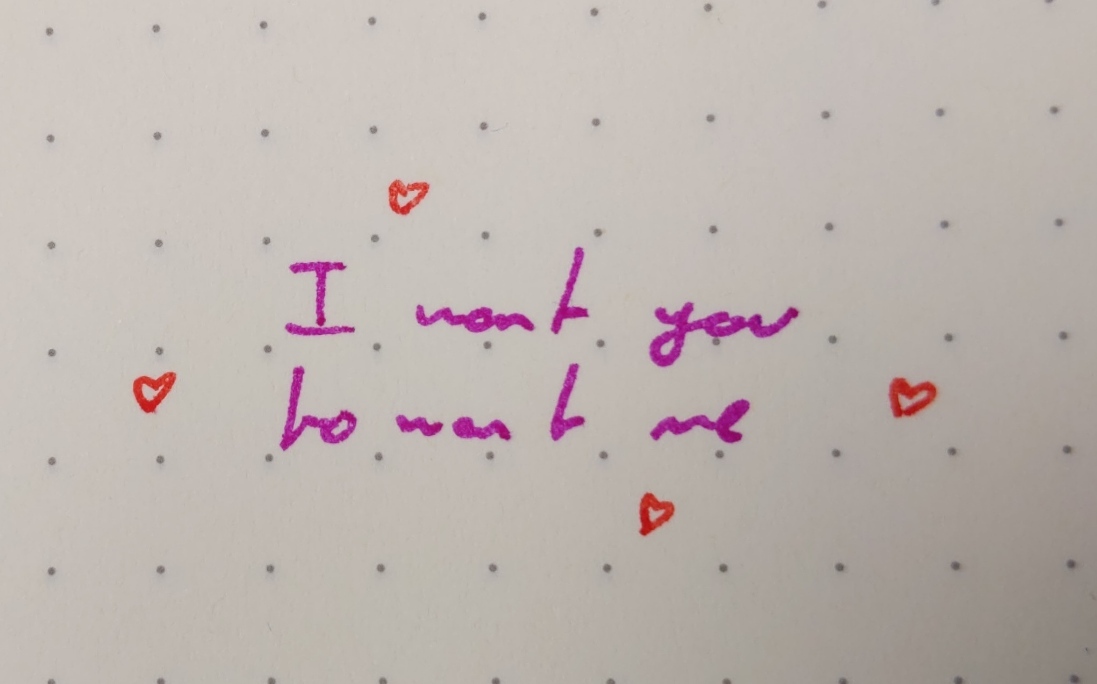 I want you
to want me